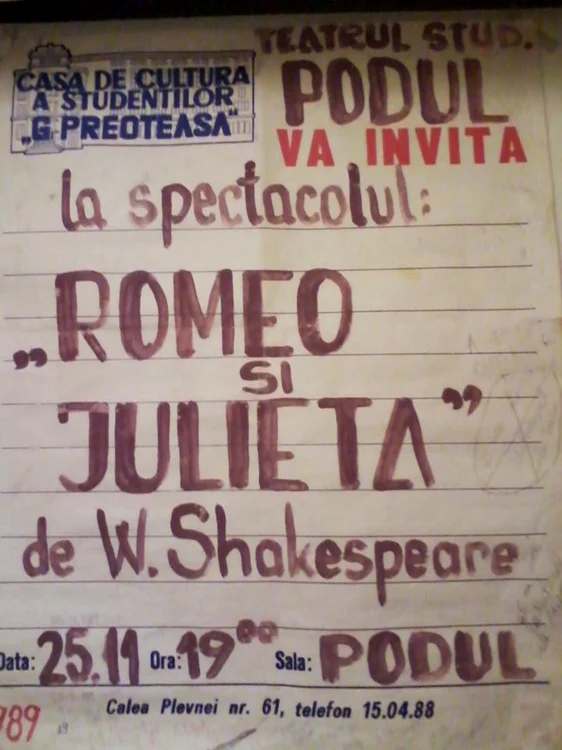 CASA DE CULTURA
A STUDENTILOR
„G PREOTEASA"
TEATRUL STUD.
PODUL
VA INVITA
la spectacolul:
„ROMEO
SI
JULIETA”
de W. Shakespeare
Data: 25.11 Ora: 19⁰⁰ Sala: PODUL
Calea Plevnei nr. 61, telefon 15.04.88
989